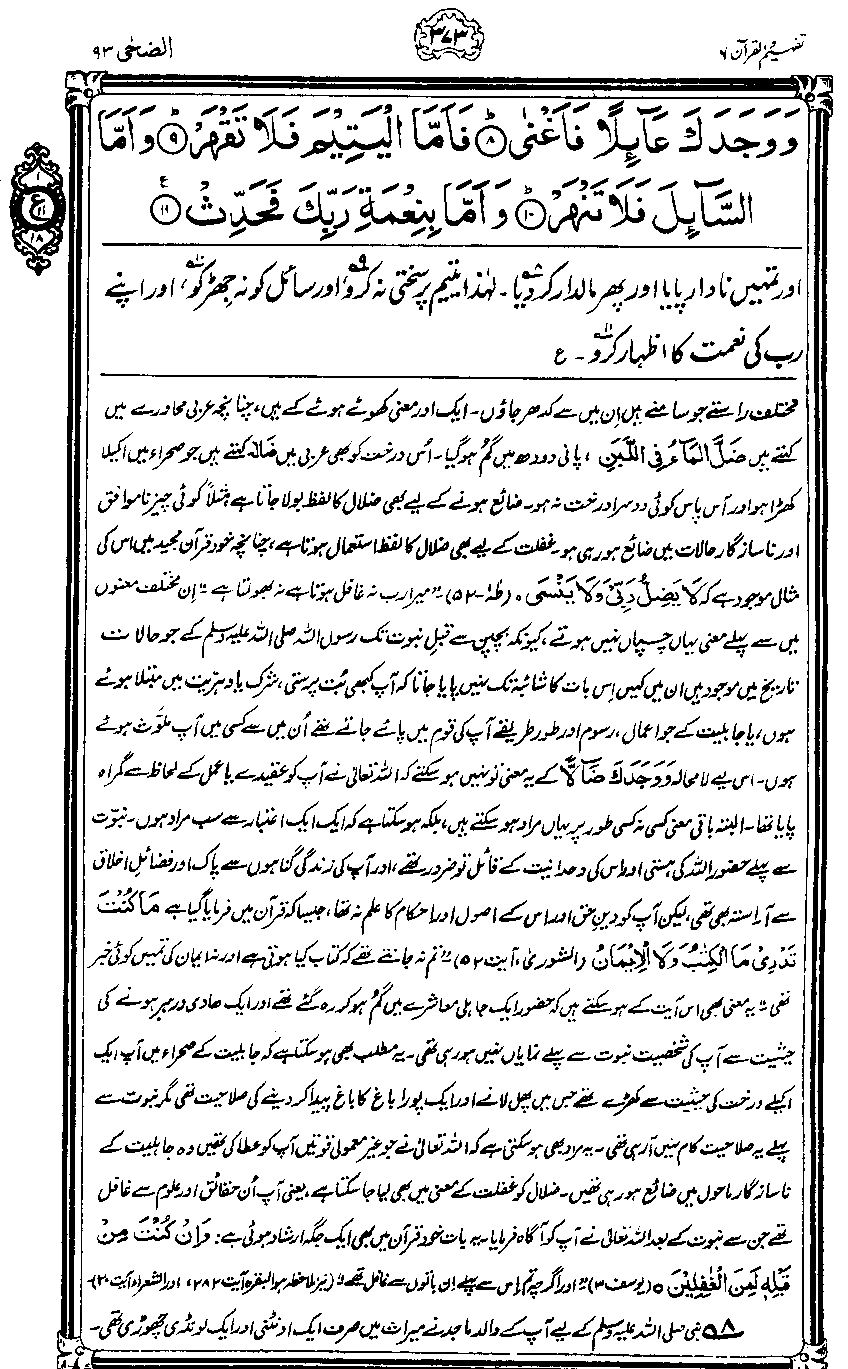 تفہیم القرآن ۶
۳۷۳
الضحٰی ۹۳
وَوَجَدَكَ عَآئِلًا فَاَغْنٰی ۸ فَاَمَّا الْیَتِیْمَ فَلَا تَقْهَرْ ۹ وَاَمَّا
السَّآئِلَ فَلَا تَنْهَرْ ۱۰ وَاَمَّا بِنِعْمَةِ رَبِّكَ فَحَدِّثْ ۱۱
ع
۱
۱۱
۱۸
اور تمہیں نادار پایا اور پھر مالدار کر دیا۔ لہٰذا یتیم پر سختی نہ کرو، اور سائل کو نہ جھڑکو، اور اپنے
رب کی نعمت کا اظہار کرو۔ ع
مختلف راستے جو سامنے ہیں ان میں سے کدھر جاؤں۔ ایک اور معنی کھوئے ہوئے کے ہیں، چنانچہ عربی محاورے میں
کہتے ہیں ضَلَّ الْمَاءُ فِی اللَّبَنِ، پانی دودھ میں گم ہو گیا۔ اُس درخت کو بھی عربی میں ضالّہ کہتے ہیں جو صحراء میں اکیلا
کھڑا ہو اور آس پاس کوئی دوسرا درخت نہ ہو۔ ضائع ہونے کے لیے بھی ضلال کا لفظ بولا جاتا ہے، مثلاً کوئی چیز ناموافق
اور ناسازگار حالات میں ضائع ہو رہی ہو۔ غفلت کے لیے بھی ضلال کا لفظ استعمال ہوتا ہے، چنانچہ خود قرآن مجید میں اس کی
مثال موجود ہے کہ لَا یَضِلُّ رَبِّیْ وَلَا یَنْسَی ہ (طٰہٰ ۵۲) "میرا رب نہ غافل ہوتا ہے نہ بھولتا ہے" اِن مختلف معنوں
میں سے پہلے معنی یہاں چسپاں نہیں ہوتے، کیونکہ بچپن سے قبلِ نبوت تک رسول اللہ صلی اللہ علیہ وسلم کے جو حالات
تاریخ میں موجود ہیں ان میں کہیں اِس بات کا شائبہ تک نہیں پایا جاتا کہ آپ کبھی بُت پرستی، شرک یا دہریت میں مبتلا ہوئے
ہوں، یا جاہلیت کے جو اعمال، رسوم اور طور طریقے آپ کی قوم میں پائے جاتے تھے اُن میں سے کسی میں آپ ملوّث ہوئے
ہوں۔ اس لیے لامحالہ وَوَجَدَكَ ضَآلًّا کے یہ معنی تو نہیں ہو سکتے کہ اللہ تعالیٰ نے آپ کو عقیدے یا عمل کے لحاظ سے گمراہ
پایا تھا۔ البتہ باقی معنی کسی نہ کسی طور پر یہاں مراد ہو سکتے ہیں، بلکہ ہو سکتا ہے کہ ایک ایک اعتبار سے سب مراد ہوں۔ نبوّت
سے پہلے حضور اللہ کی ہستی اور اس کی وحدانیت کے قائل تو ضرور تھے، اور آپ کی زندگی گناہوں سے پاک اور فضائل اخلاق
سے آراستہ بھی تھی، لیکن آپ کو دینِ حق اور اس کے اصول اور احکام کا علم نہ تھا، جیسا کہ قرآن میں فرمایا گیا ہے مَا كُنْتَ
تَدْرِیْ مَا الْكِتٰبُ وَلَا الْاِیْمَانُ (الشوریٰ، آیت ۵۲) "تم نہ جانتے تھے کہ کتاب کیا ہوتی ہے اور نہ ایمان کی تمہیں کوئی خبر
تھی"۔ یہ معنی بھی اس آیت کے ہو سکتے ہیں کہ حضور ایک جاہلی معاشرے میں گم ہو کر رہ گئے تھے اور ایک ہادی و رہبر ہونے کی
حیثیت سے آپ کی شخصیت نبوت سے پہلے نمایاں نہیں ہو رہی تھی۔ یہ مطلب بھی ہو سکتا ہے کہ جاہلیت کے صحراء میں آپ ایک
اکیلے درخت کی حیثیت سے کھڑے تھے جس میں پھل لانے اور ایک پورا باغ کا باغ پیدا کر دینے کی صلاحیت تھی مگر نبوت سے
پہلے یہ صلاحیت کام نہیں آ رہی تھی۔ یہ مراد بھی ہو سکتی ہے کہ اللہ تعالیٰ نے جو غیر معمولی قوتیں آپ کو عطا کی تھیں وہ جاہلیت کے
ناسازگار ماحول میں ضائع ہو رہی تھیں۔ ضلال کو غفلت کے معنی میں بھی لیا جا سکتا ہے، یعنی آپ اُن حقائق اور علوم سے غافل
تھے جن سے نبوت کے بعد اللہ تعالیٰ نے آپ کو آگاہ فرمایا۔ یہ بات خود قرآن میں بھی ایک جگہ ارشاد ہوئی ہے: وَاِنْ كُنْتَ مِنْ
قَبْلِهٖ لَمِنَ الْغٰفِلِیْنَ ہ (یوسف ۳) "اور اگرچہ تم اِس سے پہلے ان باتوں سے غافل تھے" (نیز ملاحظہ ہو البقرہ آیت ۲۸۲، اور الشعراء آیت ۲۰)۔
۸ نبی صلی اللہ علیہ وسلم کے لیے آپ کے والد ماجد نے میراث میں صرف ایک اونٹنی اور ایک لونڈی چھوڑی تھی۔